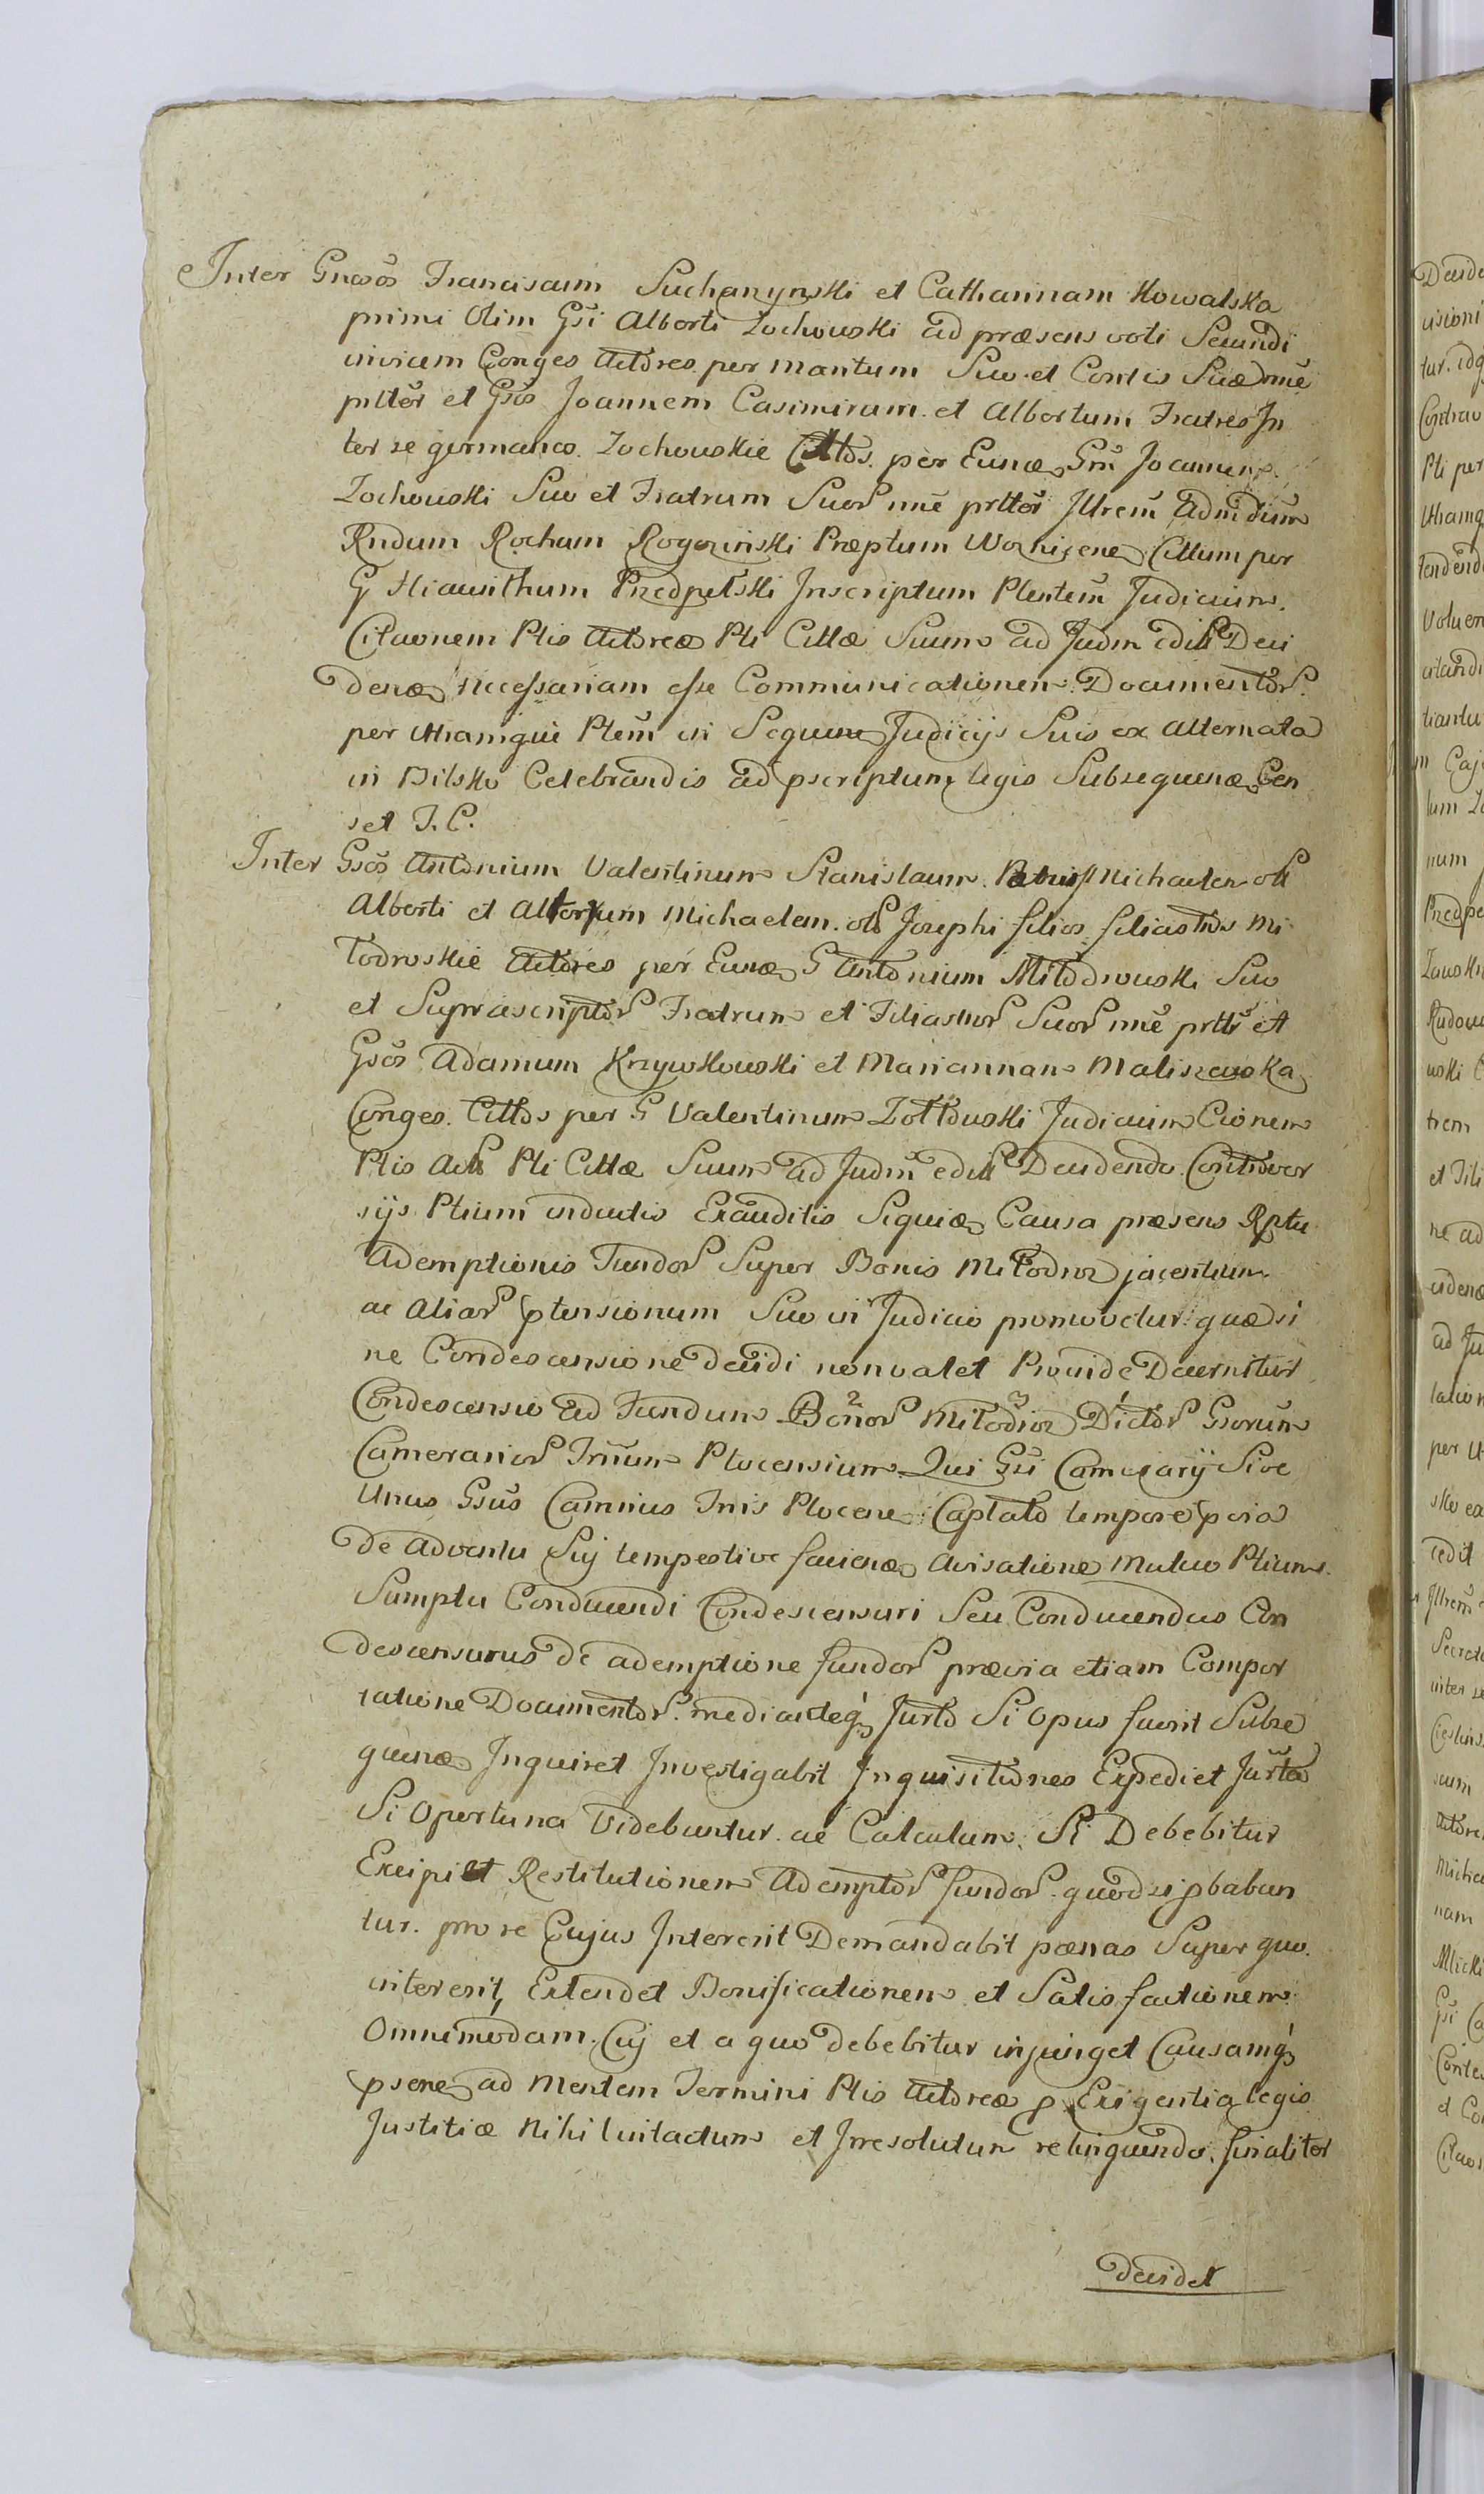 Inter Gnosos Franciscum Suchanynski et Catharinam Kowalska
primi Olim Gsi Alberti Zochowski ad præsens voti Secundi
invicem Conges Actores per maritum Suo et Contis Suæ nne
prttor et Gsos Joannem Casimirum et Albertum Fratres In
ter se germanos Zochowskie Cittos per Eunæ Gm Joannem
Zochowski Suo et Fratrum Suor nne prttor Illrem admdum
Rndum Rochum Rogozinski Præptum Cittum per
G Hiacinthum Przedpelski Inscriptum Plentem Judicium
Citaonem Ptis Actoreæ Pti Cittæ Suum ad Judm Deci
denæ necessariam esse Communicationem Documentor
per utramque Ptem in Sequen Judicijs Suis ex alternata
in Bilsko Celebrandis ad pscriptum legis Subsequenæ Cen
set J. C.
Inter Gsos Antonium Valentinum Stanislaum Michaelem oli
Alberti et Michaelem oli Josephi filios filiastros Mi
lodroskie Actores per Eunæ G Antonium Milodrowski Suo
et Suprascriptor Fratrum et Filiastror Suor nne prttr et
Gsos Adamum Krzywkowski et Mariannam Maliszewska
Conges Cittos per G Valentinum Zoltowski Judicium Cionem
Ptis Act Pti Cittæ Suum ad Judm Decidendo Controver
sijs Ptium inductis Exauditis Siquiæ Causa præsens Rptu
Ademptionis Fundor Super Bonis Milodroz jacentium
ac aliar ptensionum Suo in Judicio promovetur quæ si
ne Condescensione decidi non valet Proinde Decernitur
Condescensio ad Fundum Bonor Milodroz Dictor Gsorum
Camerarior Trium Plocensium Qui Gsi Camerarij Sive
Unus Gsus Camrius Tris Plocen Captato tempore pvia
De adventu Sui tempestive facienæ Avisatione mutuo Ptium
Sumptu Conducendi Condescensuri Seu Conducendus Con
descensurus de ademptione fundor prævia etiam Compor
tatione Documentor mediateq Jurto Si opus fuerit Subse
quenæ Inquiret Investigabit Inquisitiones Expediet Jurta
Si Opertuna Videbuntur ac Calculum Si Debebitur
Excipiet Restitutionem Ademptor fundor quod si pbabun
tur pro re Cujus Intererit Demandabit pœnas Super quo
intererit, Extendet Bonificationem et Satisfactionem
Omnimodam Cuj et a quo debebitur injunget Causamq
psenæ ad Mentem Termini Ptis Actoreæ p Exigentia legis
Justitiæ Nihil intactum et Irresolutum relinquendo finaliter
decidet